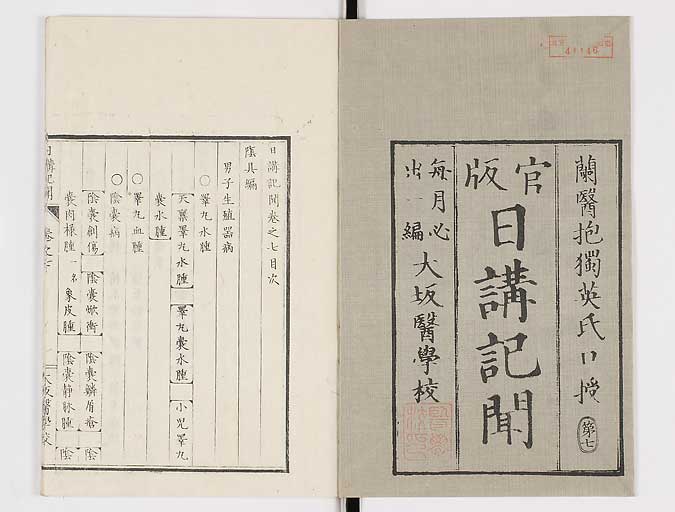 蘭醫抱獨英氏口授 第七
官版
日講記聞
每月必出一編
大坂醫學校
41146
日講記聞卷之七目次
陰具編
男子生殖器病
○睪丸水腫
天稟睪丸水腫 睪丸囊水腫 小兒睪丸
囊水腫
○睪丸血腫
○陰囊病
陰囊創傷 陰囊焮衝 陰囊 陰囊靜脉腫 陰
囊肉樣腫一名象皮腫 陰
日講記聞 卷之七 大坂醫學校